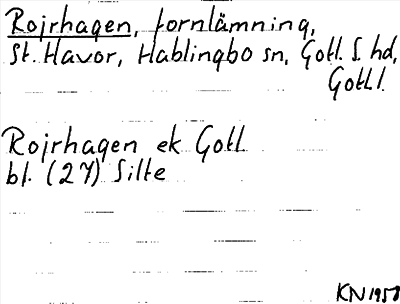 Rojrhagen, fornlämning,
St. Havor, Hablingbo sn, Gotl. S. hd,
Gotl l.
Rojrhagen ek Gotl
bl. (27) Silte
KN 1957